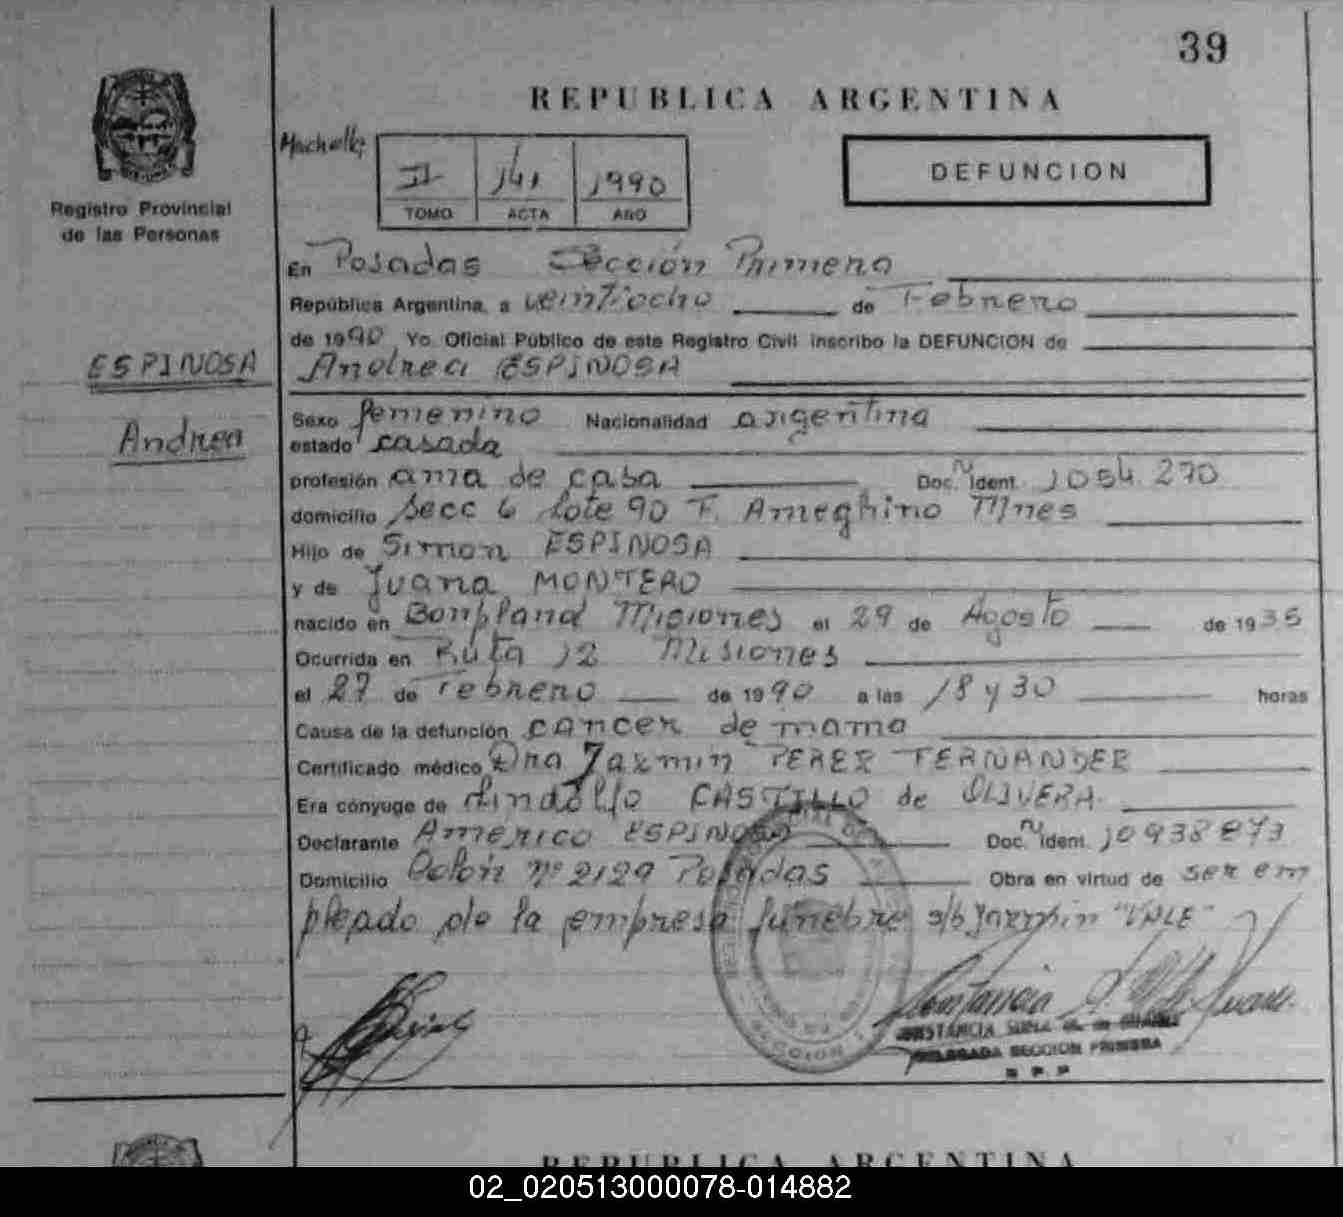 39
REPUBLICA ARGENTINA
DEFUNCION
II 141 1990
TOMO ACTA AÑO
Registro Provincial
de las Personas
En Posadas Sección Primera
República Argentina, a veintiocho de Febrero
de 1990 Yo Oficial Público de este Registro Civil inscribo la DEFUNCION de
ESPINOSA
Andrea ESPINOSA
Andrea
Sexo femenino Nacionalidad argentina
estado casada
profesión ama de casa Doc. Ident. 1054.270
domicilio Secc 6 lote 90 F. Ameghino Mnes
Hijo de Simon ESPINOSA
y de Juana MONTERO
nacido en Bonpland Misiones el 29 de Agosto de 1935
Ocurrida en Ruta 12 Misiones
el 27 de Febrero de 1990 a las 18 y 30 horas
Causa de la defunción cancer de mama
Certificado médico Dra Jazmin PEREZ FERNANDEZ
Era cónyuge de Lindolfo CASTILLO de OLIVERA
Declarante Americo ESPINOSA Doc. Ident. 10938873
Domicilio Colón nº 2129 Posadas Obra en virtud de ser em
pleado de la empresa funebre s/b Jazmin "VALE"
DELEGADA SECCION PRIMERA
R P P
REPUBLICA ARGENTINA
02_020513000078-014882